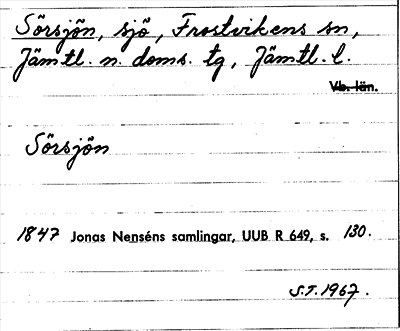 Sörsjön, sjö, Frostvikens sn,
Jämtl. n. doms. tg, Jämtl. l.
Vb. län.
Sörsjön
1847 Jonas Nenséns samlingar, UUB R 649, s. 130.
S.T. 1967.